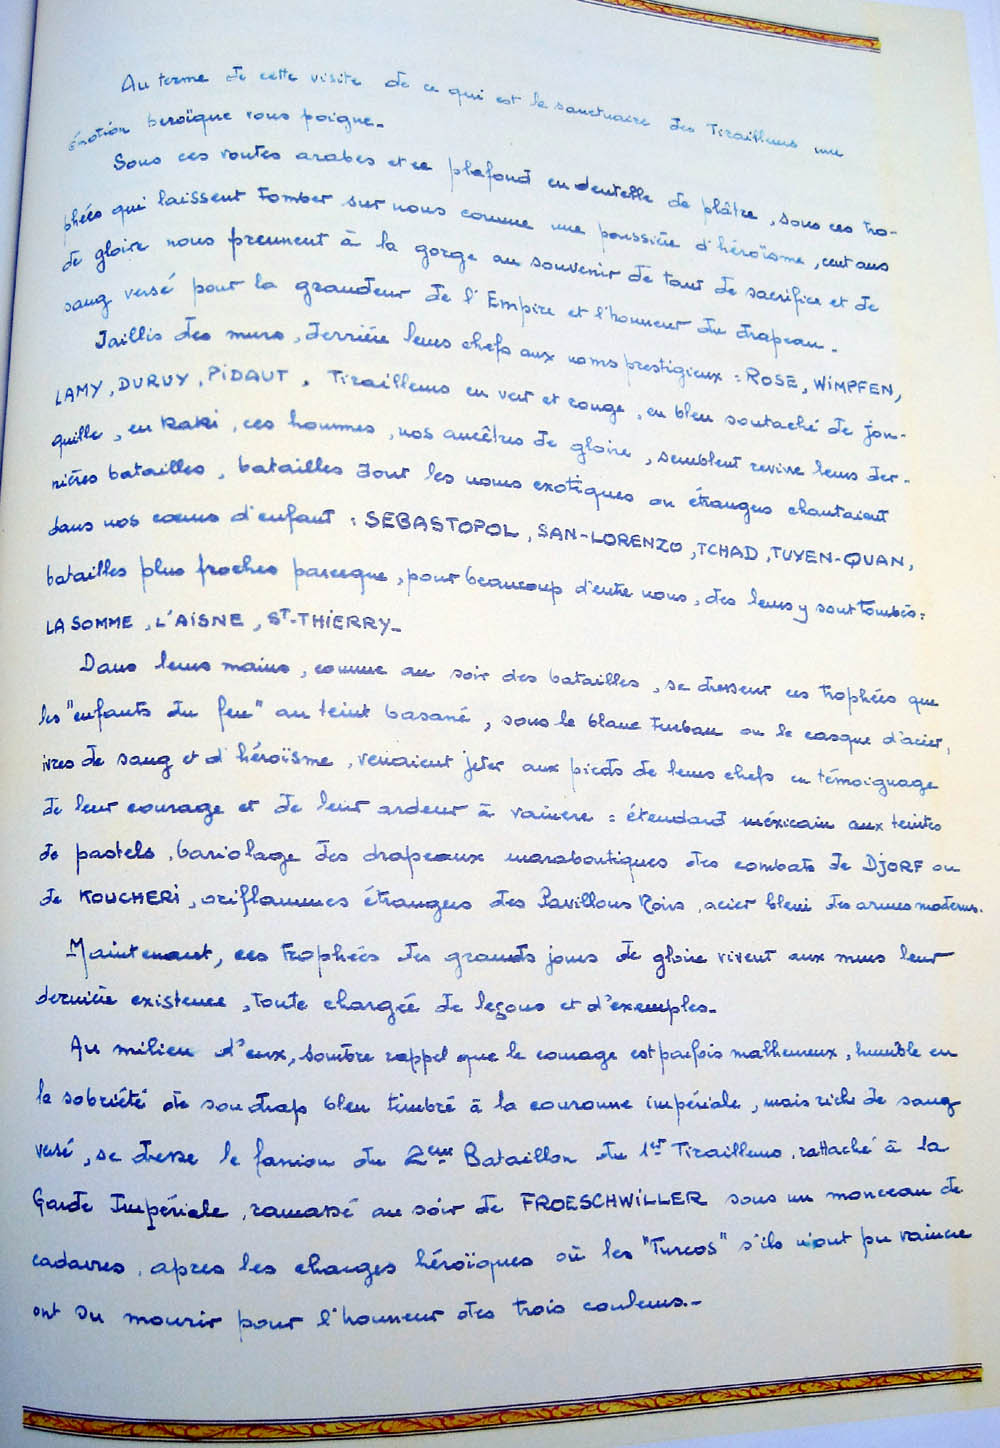 Au terme de cette visite de ce qui est le sanctuaire des Tirailleurs une
émotion héroïque vous poigne.
Sous ces voutes arabes et ce plafond en dentelle de plâtre, sous ces tro-
phées qui laissent tomber sur nous comme une poussière d'héroïsme, cent ans
de gloire nous prennent à la gorge au souvenir de tant de sacrifice et de
sang versé pour la grandeur de l'Empire et l'honneur du drapeau.
Jaillis des murs, derrière leurs chefs aux noms prestigieux : ROSE, WIMPFEN,
LAMY, DURUY, PIDAUT, Tirailleurs en vert et rouge, en bleu soutaché de jon-
quille, en kaki, ces hommes, nos ancêtres de gloire, semblent revivre leurs der-
nières batailles, batailles dont les noms exotiques ou étranges chantaient
dans nos cœurs d'enfant : SEBASTOPOL, SAN-LORENZO, TCHAD, TUYEN-QUAN,
batailles plus proches parceque, pour beaucoup d'entre nous, des leurs y sont tombés :
LA SOMME, L'AISNE, ST-THIERRY_
Dans leurs mains, comme au soir des batailles, se dressent ces trophées que
les "enfants du feu" au teint basané, sous le blanc turban ou le casque d'acier,
ivres de sang et d'héroïsme, venaient jeter aux pieds de leurs chefs en témoignage
de leur courage et de leur ardeur à vaincre : étendard méxicain aux teintes
de pastels, bariolage des drapeaux maraboutiques des combats de DJORF ou
de KOUCHERI, oriflammes étranges des Pavillons Noirs, acier bleui des armes modernes.
Maintenant, ces trophées des grands jours de gloire vivent aux murs leur
dernière existence, toute chargée de leçons et d'exemples_
Au milieu d'eux, sombre rappel que le courage est parfois malheureux, humble en
la sobriété de son drap bleu timbré à la couronne impériale, mais riche de sang
versé, se dresse le fanion du 2ème Bataillon du 1er Tirailleurs, rattaché à la
Garde Impériale, ramassé au soir de FROESCHWILLER sous un monceau de
cadavres, après les charges héroïques où les "Turcos" s'ils n'ont pu vaincre
ont su mourir pour l'honneur des trois couleurs._